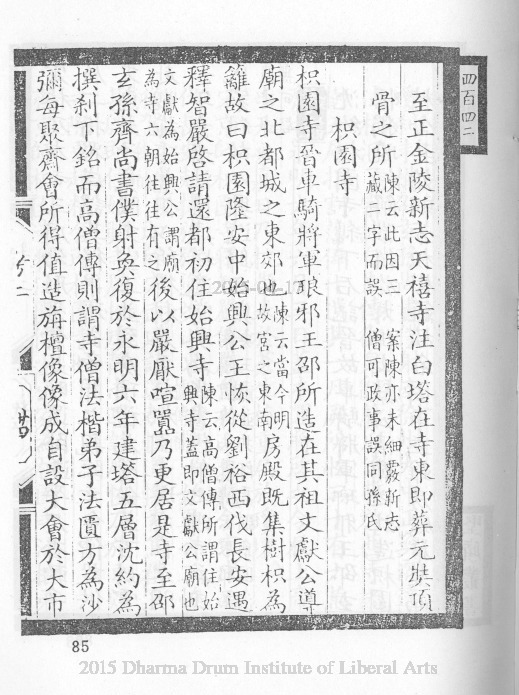 四百四二
至正金陵新志天禧寺注白塔在寺東即葬元奘頂
骨之所陳云此因三藏二字而誤 案陳亦未細覈新志僧可政事誤同蔣氏
枳園寺
枳園寺晉車騎將軍琅邪王邵所造在其祖文獻公導
廟之北都城之東郊也陳云當今明故宮之東南房殿既集樹枳為
籬故曰枳園隆安中始興公王恢從劉裕西伐長安遇
釋智嚴啓請還都初住始興寺陳云高僧傳所謂住始興寺蓋即文獻公廟也
文獻為始興公謂廟為寺六朝往往有之後以嚴厭喧囂乃更居是寺至邵
玄孫齊尚書僕射奐復於永明六年建塔五層沈約為
撰刹下銘而高僧傳則謂寺僧法楷弟子法匱方為沙
彌每聚齊會所得值造旃檀像像成自設大會於大市
2015-01-17
85
2015 Dharma Drum Institute of Liberal Arts